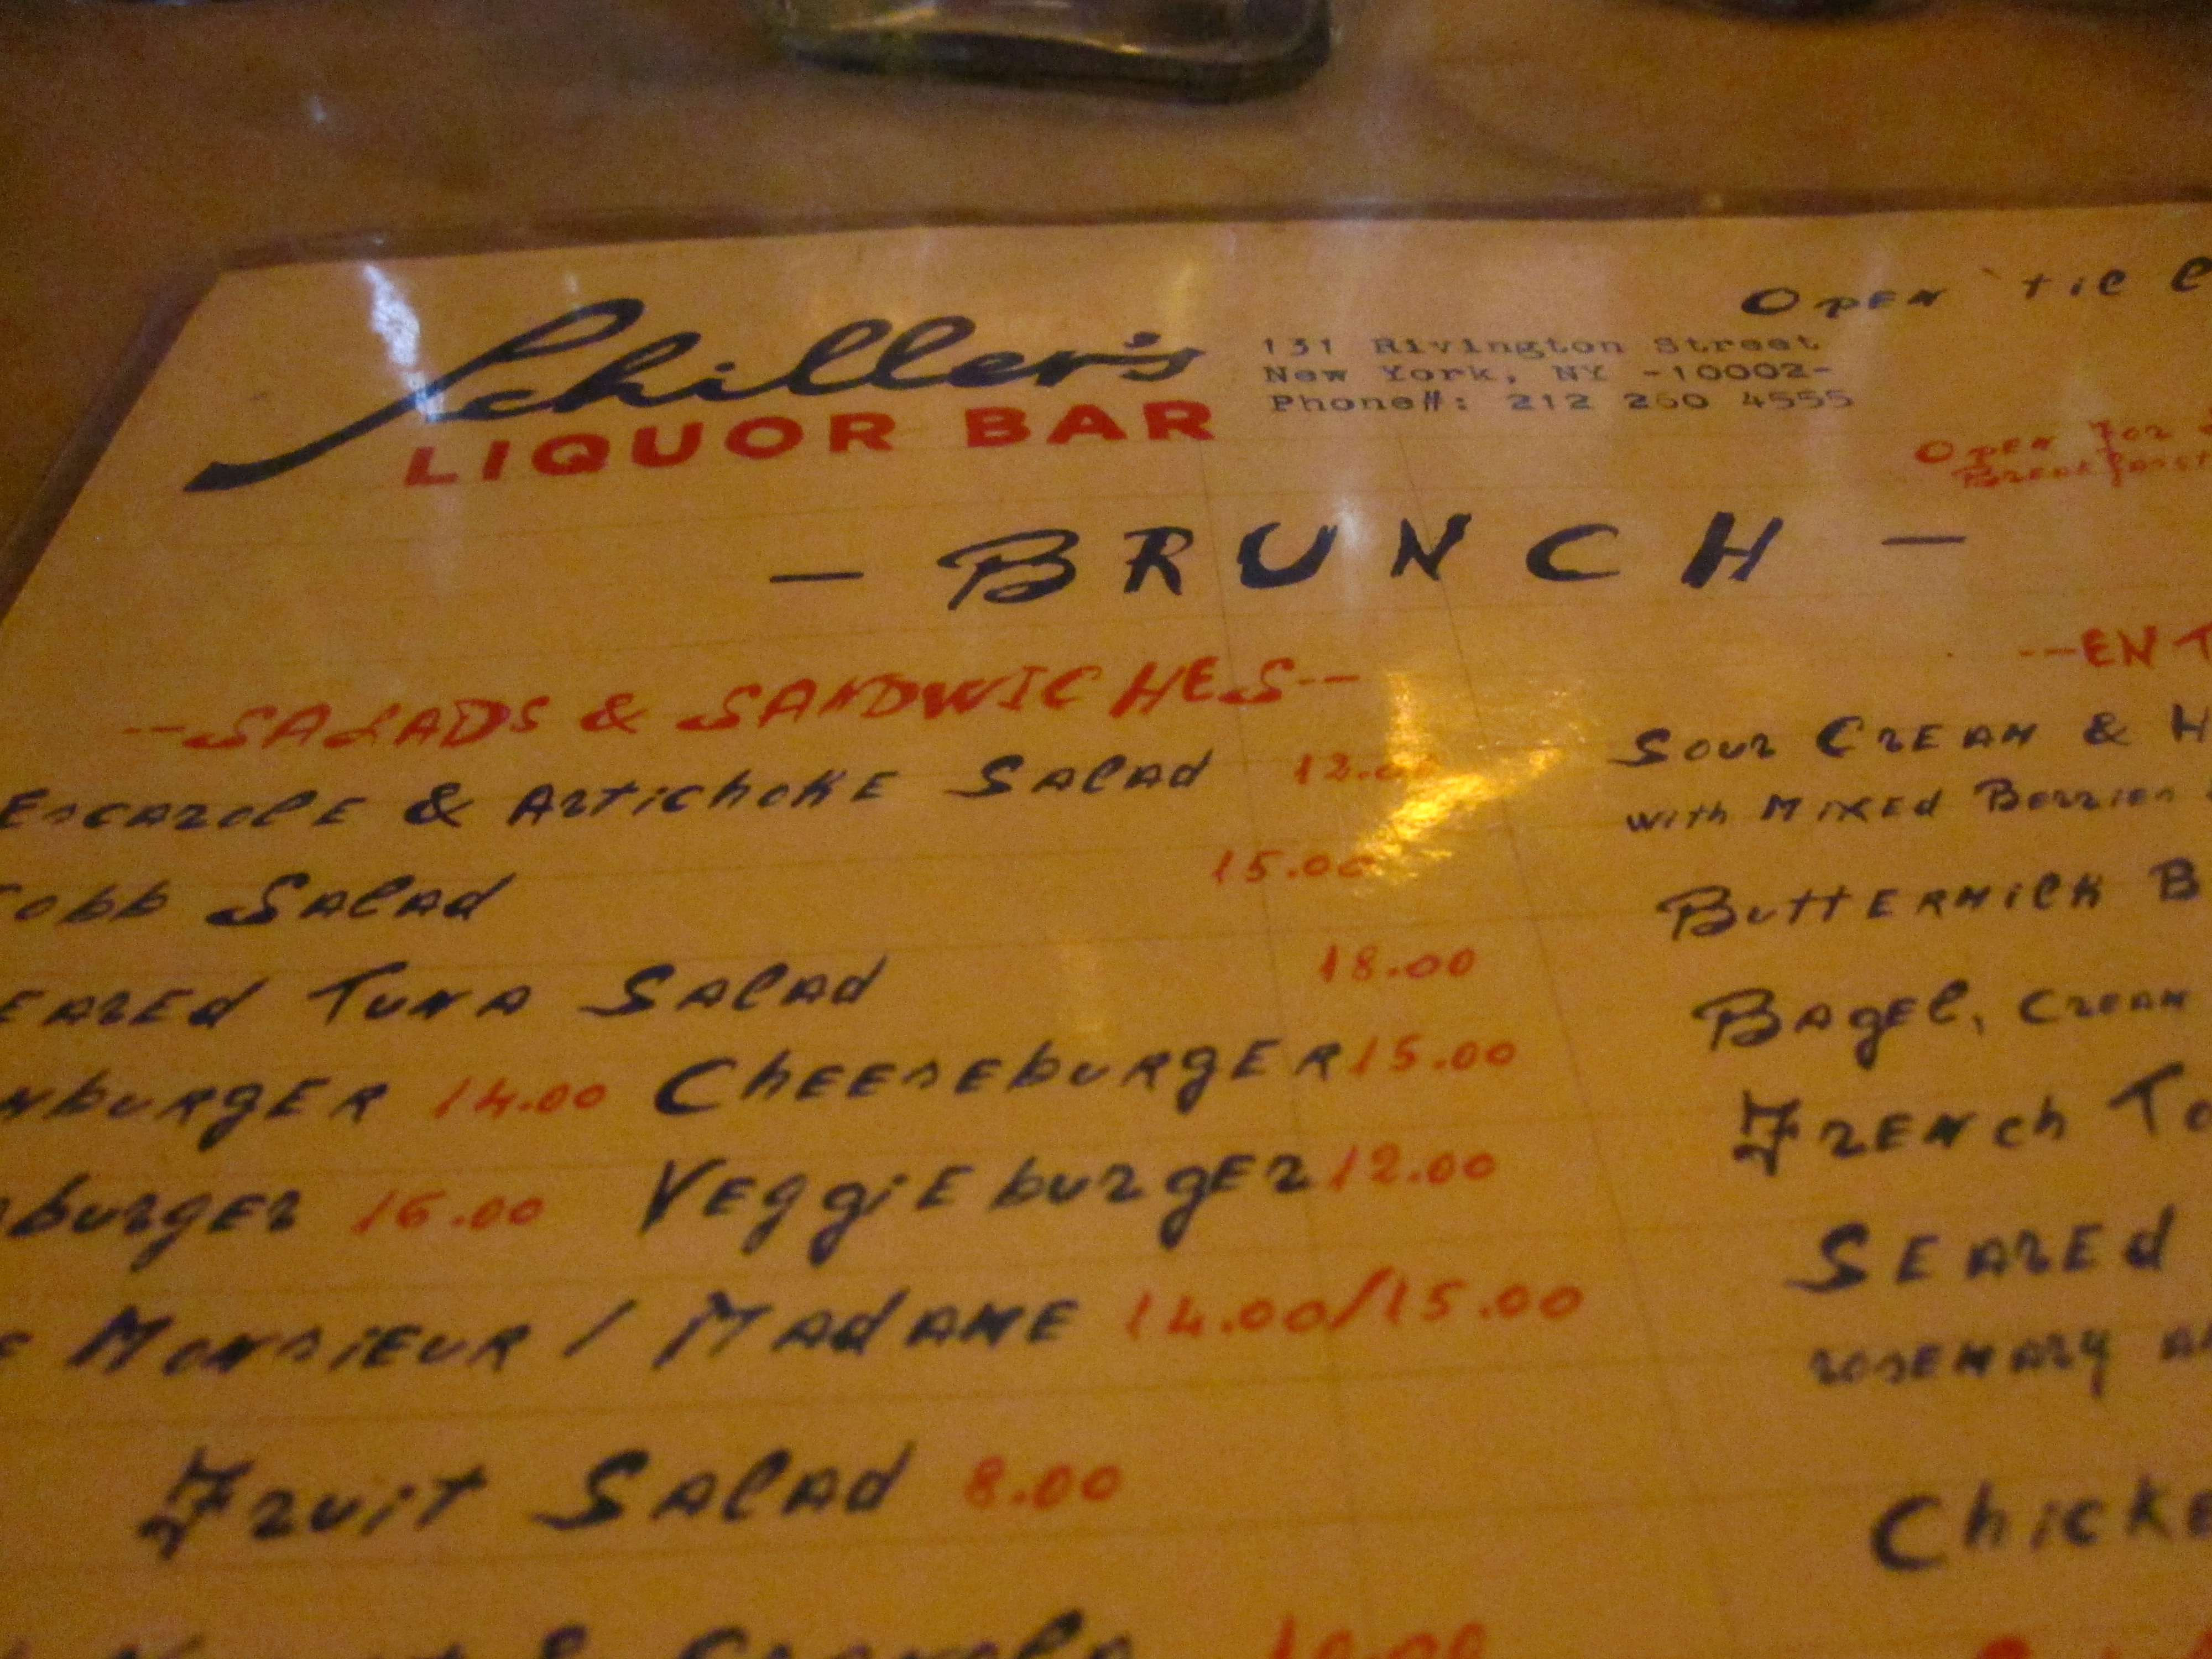 Schiller's
LIQUOR BAR
131 Rivington Street
New York, NY -10002-
Phone#: 212 260 4555
Open 'til
Open For
Breakfast
- BRUNCH -
--SALADS & SANDWICHES--
Escarole & Artichoke Salad 12.00
Cobb Salad 15.00
Seared Tuna Salad 18.00
mburger 14.00 Cheeseburger 15.00
burger 16.00 Veggie burger 12.00
Monsieur / Madame 14.00/15.00
Fruit Salad 8.00
& Granola 10.00
--ENT
Sour Cream & H
with Mixed Berries
Buttermilk B
Bagel, Cream
French To
Seared
rosemary
Chicke